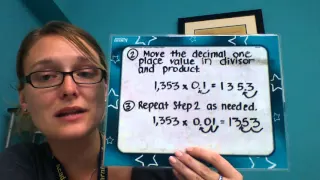 ② Move the decimal one
place value in divisor
and product
1,353 x 0.1 = 1353
③ Repeat Step 2 as needed.
1,353 x 0.01 = 1353